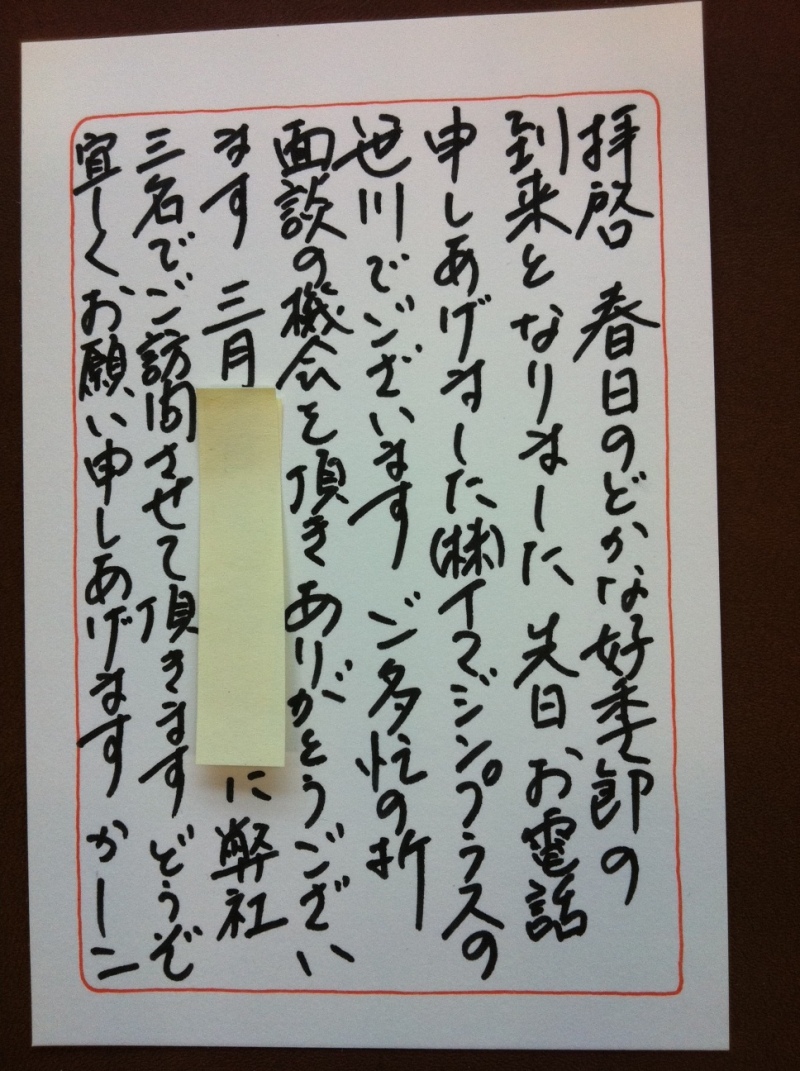 拝啓 春日のどかな好季節の
到来となりました 先日お電話
申しあげました(株)イマジンプラスの
笹川でございます ご多忙の折
面談の機会を頂きありがとうござい
ます 三月 に弊社
三名でご訪問させて頂きます どうぞ
宜しくお願い申しあげます かしこ